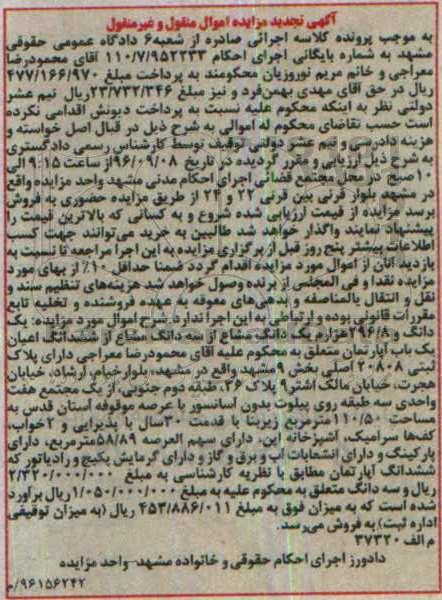 آگهی تجدید مزایده اموال منقول و غیرمنقول
به موجب پرونده کلاسه اجرائی صادره از شعبه۶ دادگاه عمومی حقوقی
مشهد به شماره بایگانی اجرای احکام ۱۱۰/۷/۹۵۲۲۳۳ آقای محمودرضا
معراجی و خانم مریم نوروزیان محکومند به پرداخت مبلغ ۴۷۷/۱۶۶/۹۷۰
ریال در حق آقای مهدی بهمن‌فرد و نیز مبلغ ۲۳/۷۳۲/۳۴۶ریال نیم عشر
دولتی نظر به اینکه محکوم علیه نسبت به پرداخت دیونش اقدامی نکرده
است حسب تقاضای محکوم له اموالی به شرح ذیل در قبال اصل خواسته و
هزینه دادرسی و نیم عشر دولتی توقیف توسط کارشناس رسمی دادگستری
به شرح ذیل ارزیابی و مقرر گردیده در تاریخ ۹۶/۰۹/۰۸از ساعت ۹:۱۵ الی
۱۰صبح در محل مجتمع قضائی اجرای احکام مدنی مشهد واحد مزایده واقع
در مشهد بلوار قرنی بین قرنی ۲۲ و ۲۴ از طریق مزایده حضوری به فروش
برسد مزایده از قیمت ارزیابی شده شروع و به کسانی که بالاترین قیمت را
پیشنهاد نمایند واگذار خواهد شد طالبین به خرید می‌توانند جهت کسب
اطلاعات بیشتر پنج روز قبل از برگزاری مزایده به این اجرا مراجعه تا نسبت به
بازدید آنان از اموال مورد مزایده اقدام گردد ضمنا حداقل ۱۰٪ از بهای مورد
مزایده نقدا و فی المجلس از برنده وصول خواهد شد هزینه‌های تنظیم سند و
نقل و انتقال بالمناصفه و بدهی‌های معوقه به عهده فروشنده و تخلیه تابع
مقررات قانونی بوده و ارتباطی به این اجرا ندارد. شرح اموال مورد مزایده: یک
دانگ و ۲۹۶/۸هزارم یک دانگ مشاع از سه دانگ مشاع از ششدانگ اعیان
یک باب آپارتمان متعلق به محکوم علیه آقای محمودرضا معراجی دارای پلاک
ثبتی ۲۰۸۰۸ اصلی بخش ۹مشهد واقع در مشهد، بلوار خیام، ارشاد، خیابان
هجرت، خیابان مالک اشتر۹ پلاک ۳۶، طبقه دوم جنوبی، از یک مجتمع هفت
واحدی سه طبقه روی پیلوت بدون آسانسور با عرصه موقوفه آستان قدس به
مساحت ۱۱۰/۵۰مترمربع زیربنا با قدمت ۳۰سال با پذیرایی و ۲خواب،
کف‌ها سرامیک، آشپزخانه اپن، دارای سهم العرصه ۵۸/۸۹مترمربع، دارای
پارکینگ و دارای انشعابات آب و برق و گاز و دارای گرمایش پکیج و رادیاتور که
ششدانگ آپارتمان مطابق با نظریه کارشناسی به مبلغ ۲/۳۲۰/۰۰۰/۰۰۰
ریال و سه دانگ متعلق به محکوم علیه به مبلغ ۱/۰۵۰/۰۰۰/۰۰۰ریال برآورد
شده است که به میزان فوق به مبلغ ۴۵۳/۸۸۶/۰۱۱ ریال (به میزان توقیفی
اداره ثبت) به فروش می‌رسد.
م الف ۳۷۳۲۰
دادورز اجرای احکام حقوقی و خانواده مشهد-واحد مزایده
۹۶۱۵۶۲۴۲/م